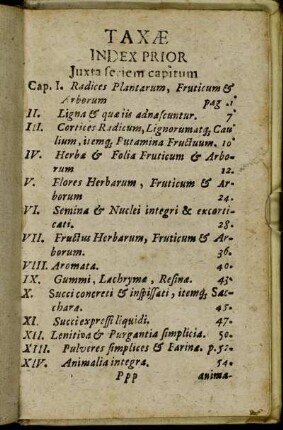 TAXÆ
INDEX PRIOR
Juxta seriem capitum
Cap. I. Radices Plantarum, Fruticum &
Arborum pag. 1
II. Ligna & quæ iis adnascuntur. 7
III. Cortices Radicum, Lignorumatq; Cau
lium, itemq; Putamina Fructuum. 10
IV. Herbæ & Folia Fruticum & Arbo-
rum 12.
V. Flores Herbarum, Fruticum & Ar-
borum 24.
VI. Semina & Nuclei integri & excorti-
cati. 28.
VII. Fructus Herbarum, Fruticum & Ar-
borum. 36.
VIII. Aromata. 40.
IX. Gummi, Lachrymæ, Resinæ. 43.
X. Succi concreti & inspissati, itemq; Sac-
chara. 45.
XI. Succi expressi liquidi. 47.
XII. Lenitiva & Purgantia simplicia. 50.
XIII. Pulveres simplices & Farinæ. p. 52.
XIV. Animalia integra. 54.
Ppp anima-